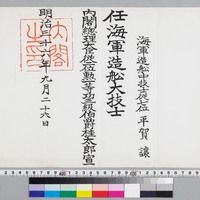 海軍造船中技士正七位 平賀 讓
任海軍造船大技士
内閣總理大臣從二位勲一等功三級伯爵桂太郎宣
明治三十六年九月二十六日
内閣之印